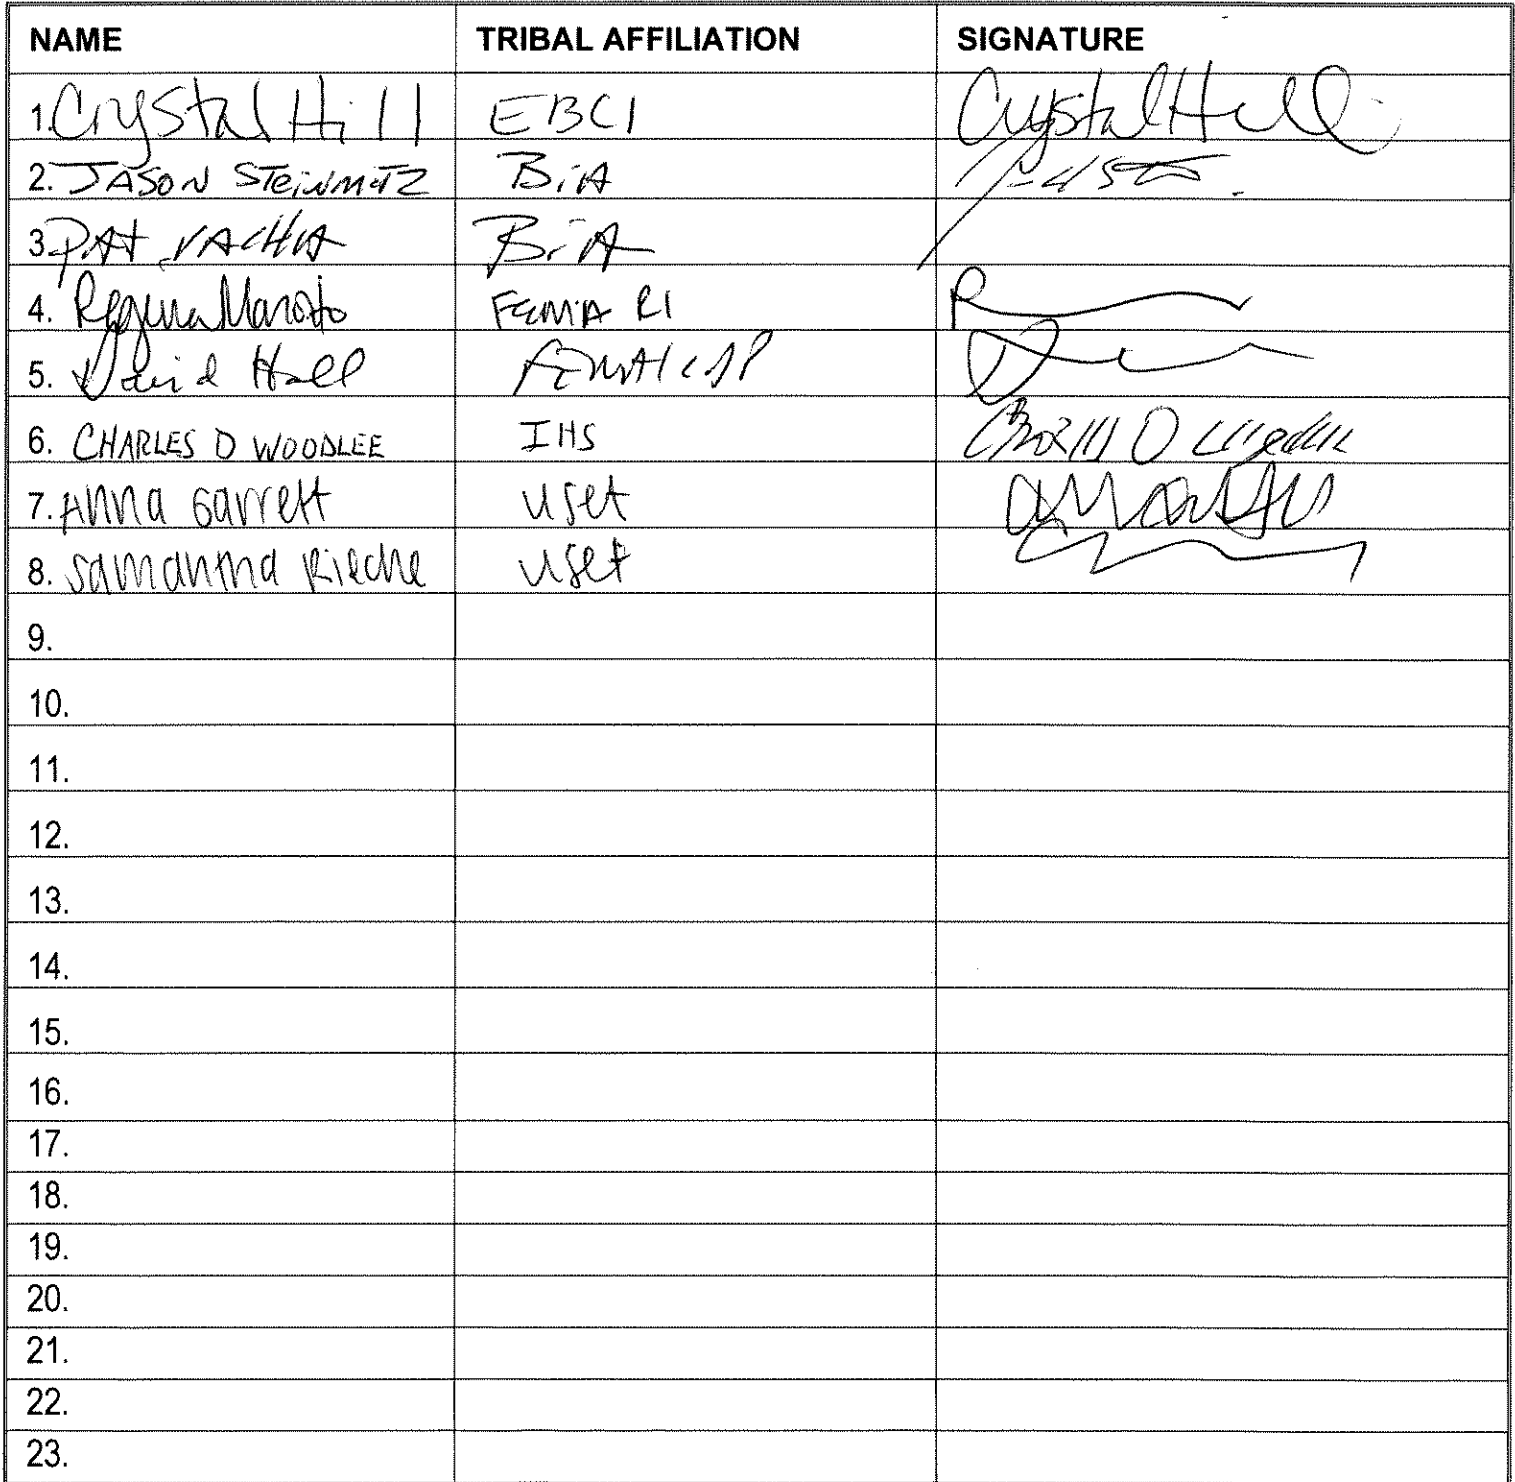 NAME TRIBAL AFFILIATION SIGNATURE
1. Crystal Hill EBCI Crystal Hill
2. JASON STEINMETZ BiA
3. PAT VACHIA BiA
4. Regina Marotto FEMA RI
5. David Hall
6. CHARLES D WOODLEE IHS
7. Anna Garrett uset
8. Samantha uset
9.
10.
11.
12.
13.
14.
15.
16.
17.
18.
19.
20.
21.
22.
23.